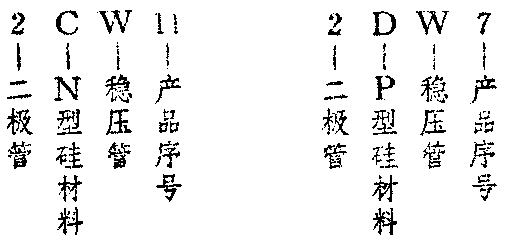 2 C W 11
二极管
N型硅材料
稳压管
产品序号
2 D W 7
二极管
P型硅材料
稳压管
产品序号